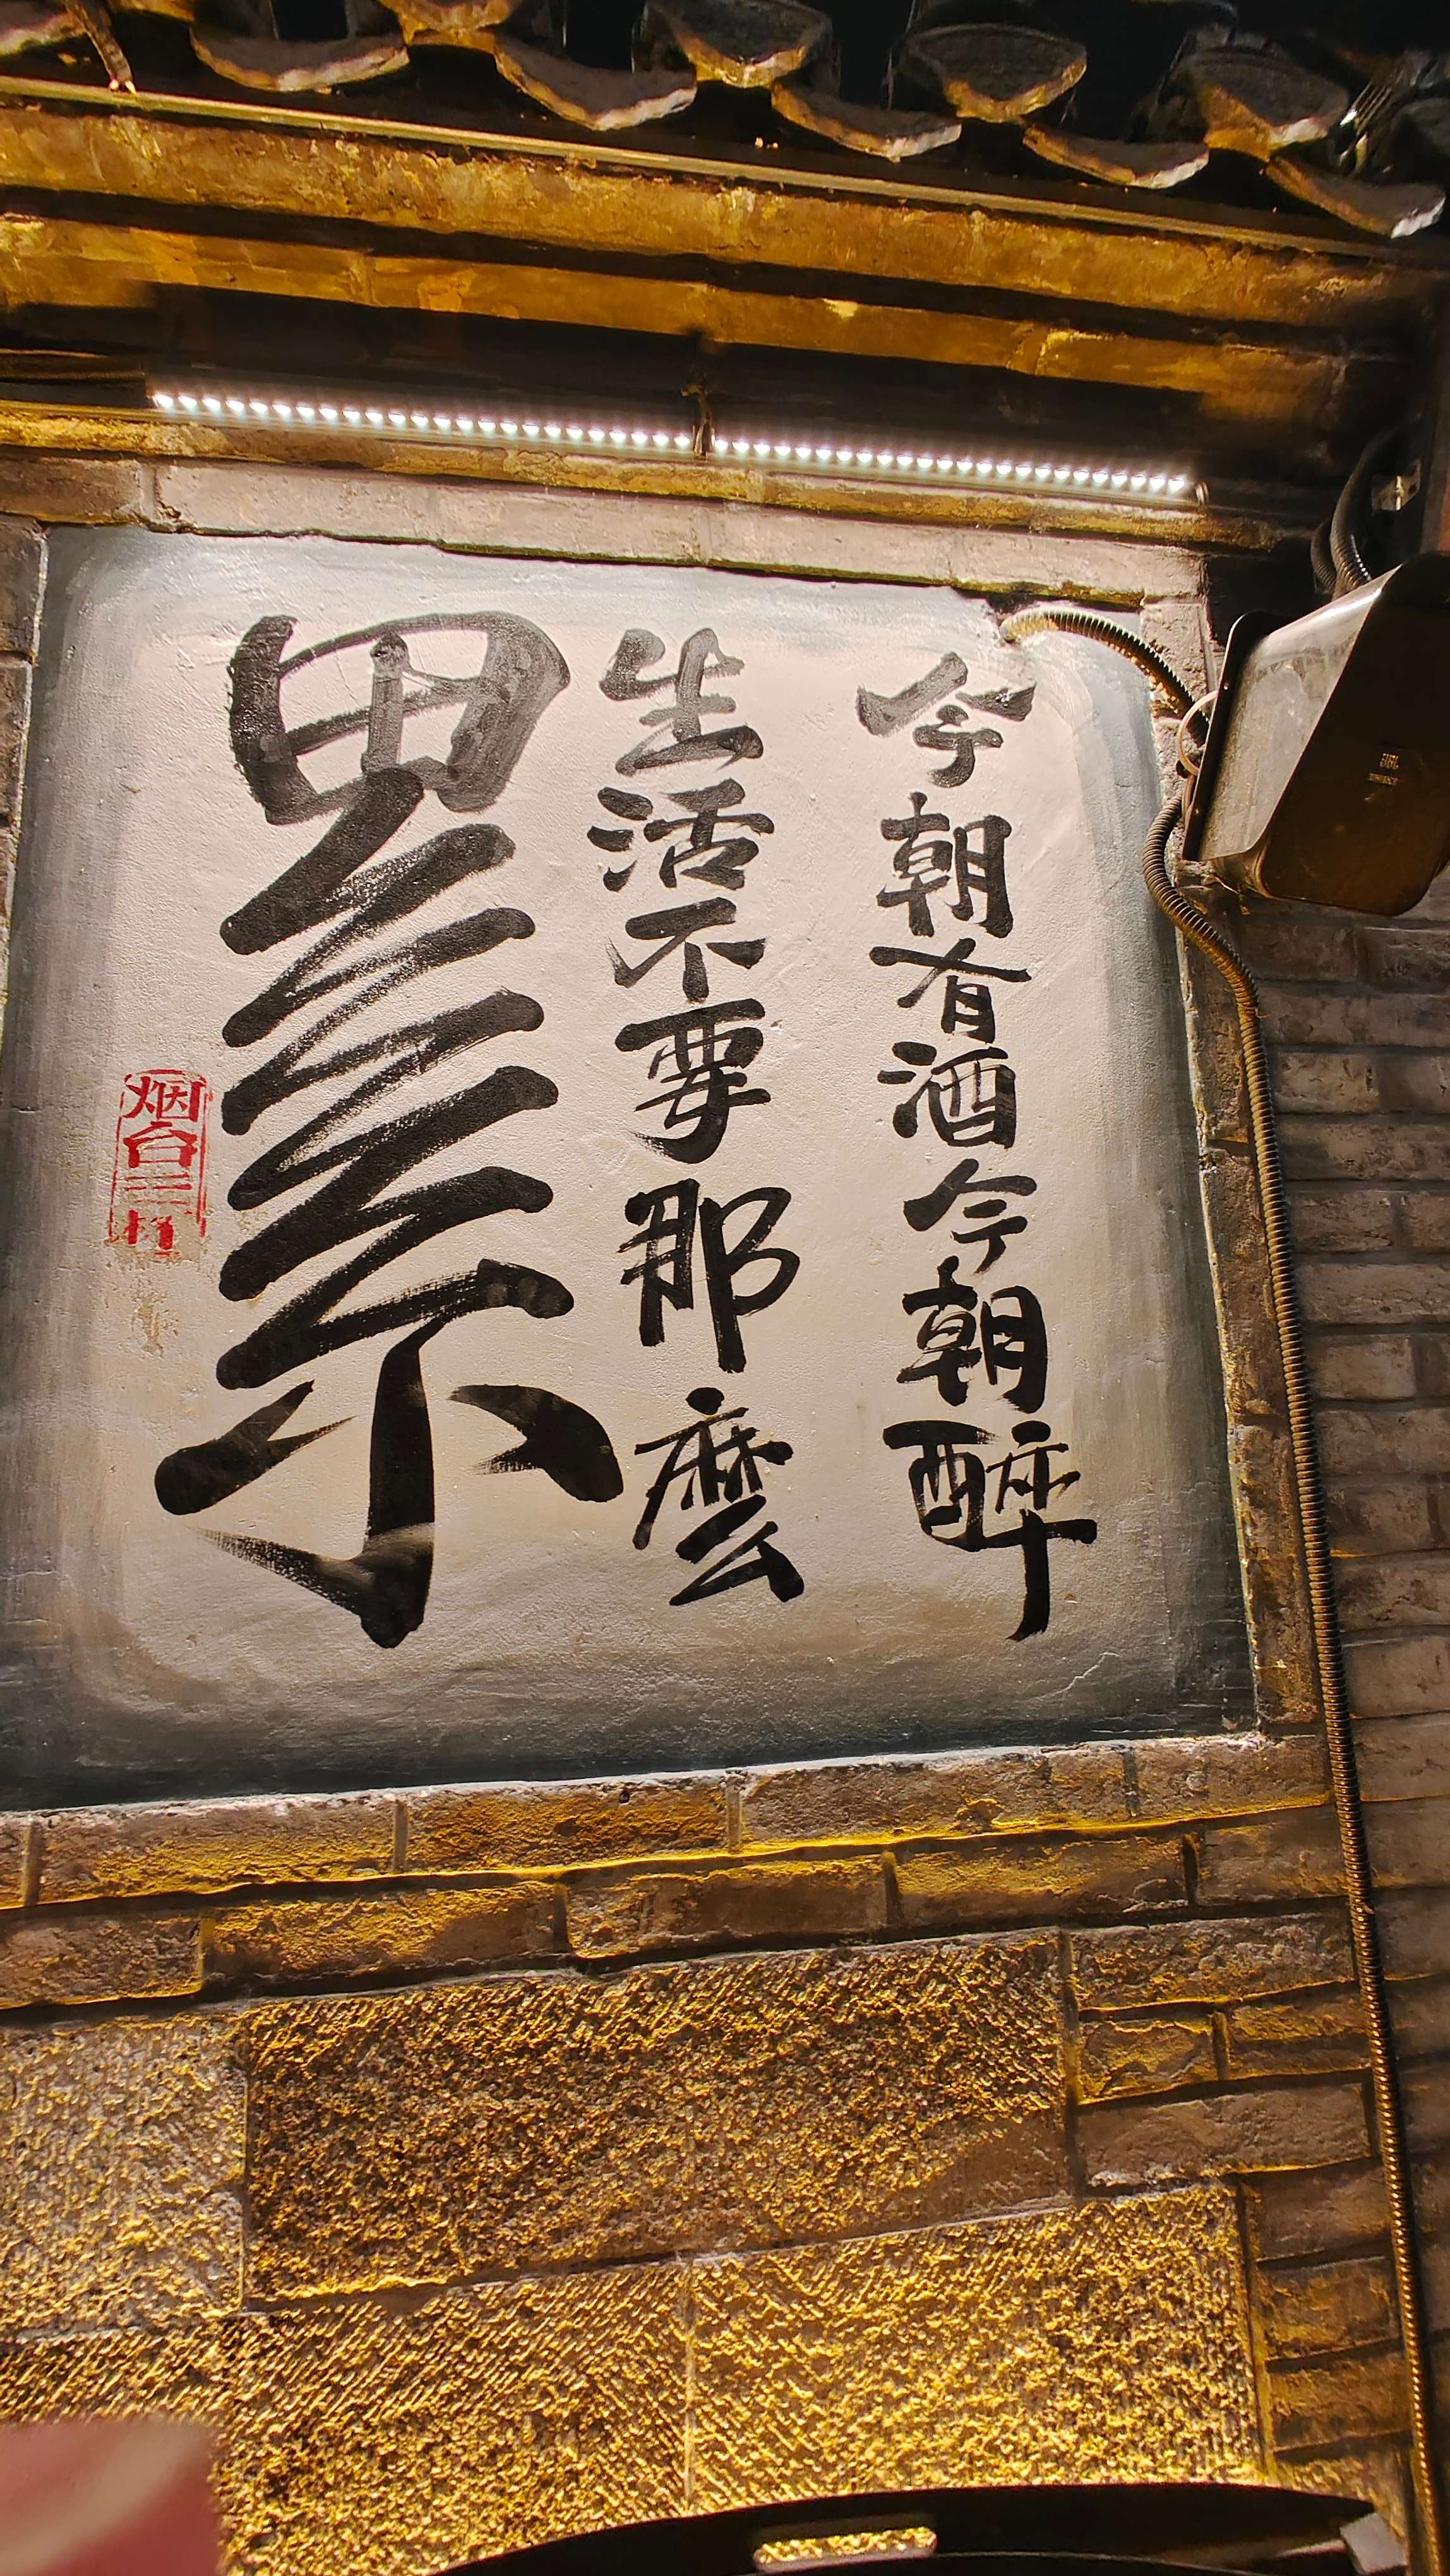 今朝有酒今朝醉
生活不要那麼
累
烟台三杯
JBL